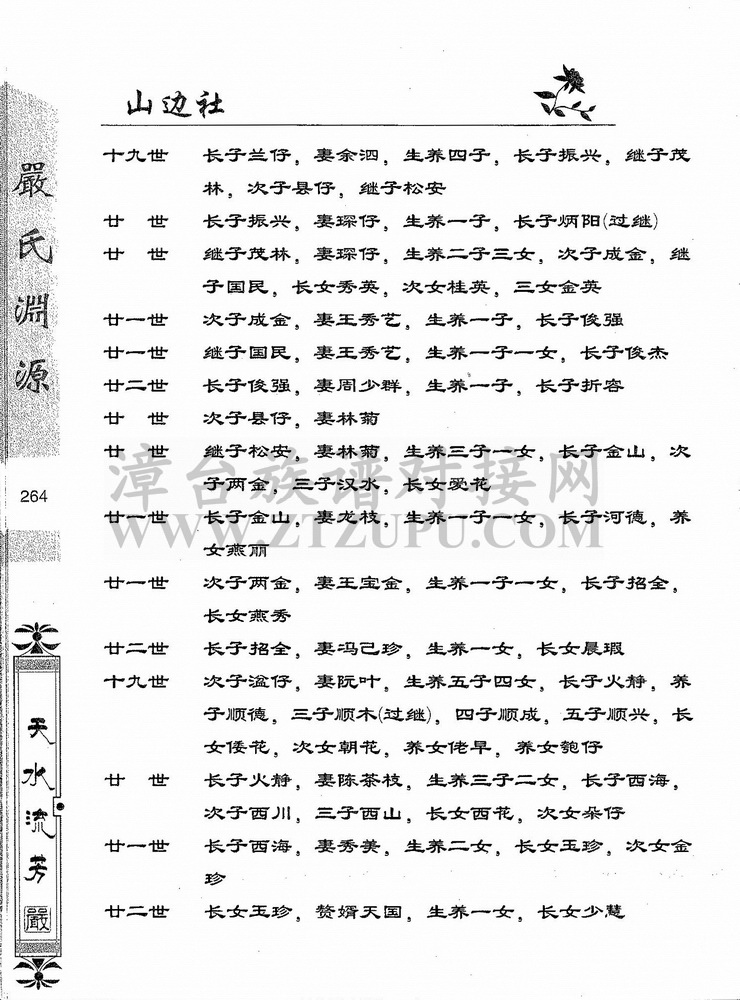 山边社
十九世 长子兰仔，妻余泗，生养四子，长子振兴，继子茂
林，次子县仔，继子松安
廿 世 长子振兴，妻琛仔，生养一子，长子炳阳(过继)
廿 世 继子茂林，妻琛仔，生养二子三女，次子成金，继
子国民，长女秀英，次女桂英，三女金英
廿一世 次子成金，妻王秀艺，生养一子，长子俊强
廿一世 继子国民，妻王秀艺，生养一子一女，长子俊杰
廿二世 长子俊强，妻周少群，生养一子，长子折容
廿 世 次子县仔，妻林菊
廿 世 继子松安，妻林菊，生养三子一女，长子金山，次
子两金，三子汉水，长女爱花
廿一世 长子金山，妻龙枝，生养一子一女，长子河德，养
女燕丽
廿一世 次子两金，妻王宝金，生养一子一女，长子招全，
长女燕秀
廿二世 长子招全，妻冯己珍，生养一女，长女晨瑕
十九世 次子溢仔，妻阮叶，生养五子四女，长子火静，养
子顺德，三子顺木(过继)，四子顺成，五子顺兴，长
女倭花，次女朝花，养女佬早，养女匏仔
廿 世 长子火静，妻陈茶枝，生养三子二女，长子西海，
次子西川，三子西山，长女西花，次女朵仔
廿一世 长子西海，妻秀美，生养二女，长女玉珍，次女金
珍
廿二世 长女玉珍，赘婿天国，生养一女，长女少慧
嚴氏淵源
264
天水流芳
嚴
漳台族谱对接网
WWW.ZTZUPU.COM